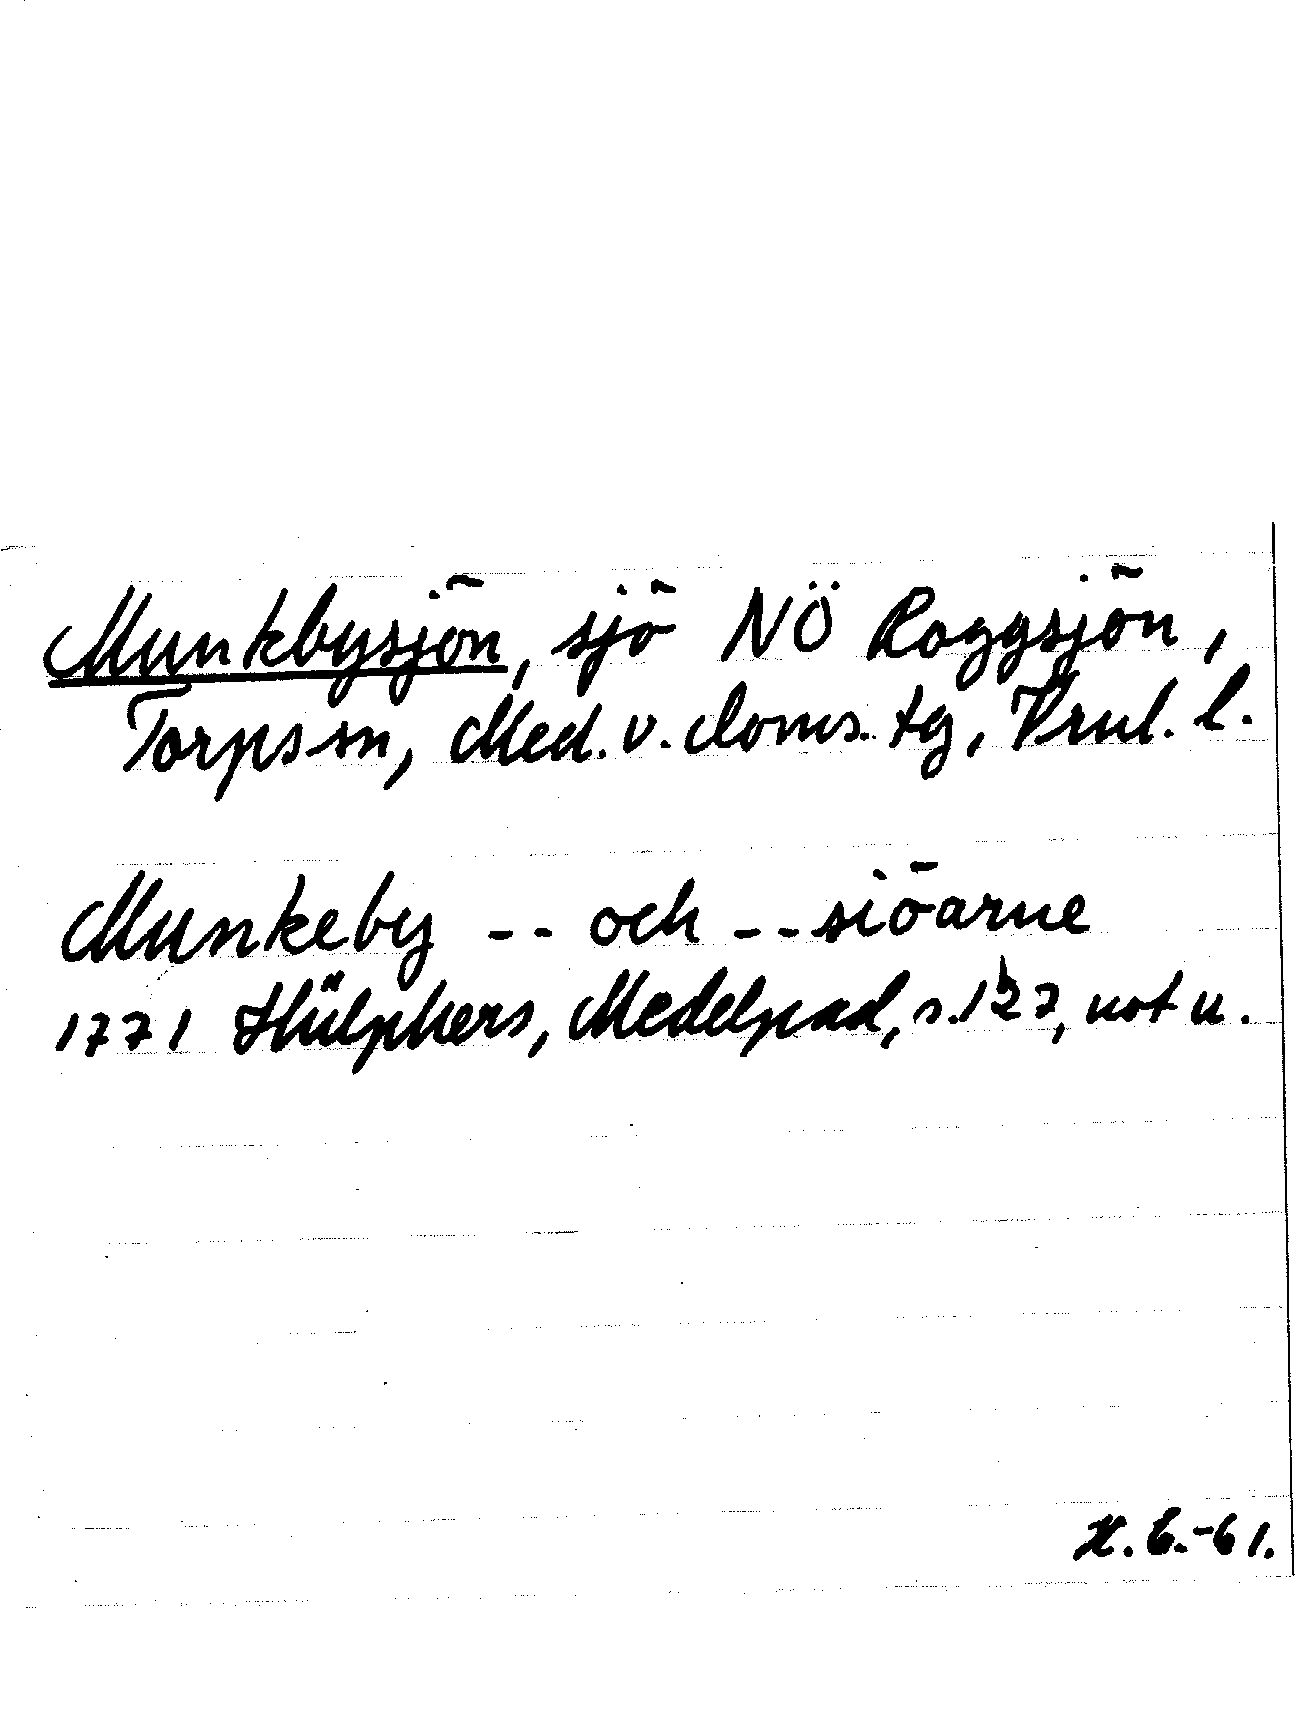 Munkbysjön, sjö NÖ Roggsjön,
Torps sn, Med. v. doms. tg, Vrnl. l.
Munkeby -- och --siöarne
1771 Hülphers, Medelpad, s. 127, not u.
H. B. -61.